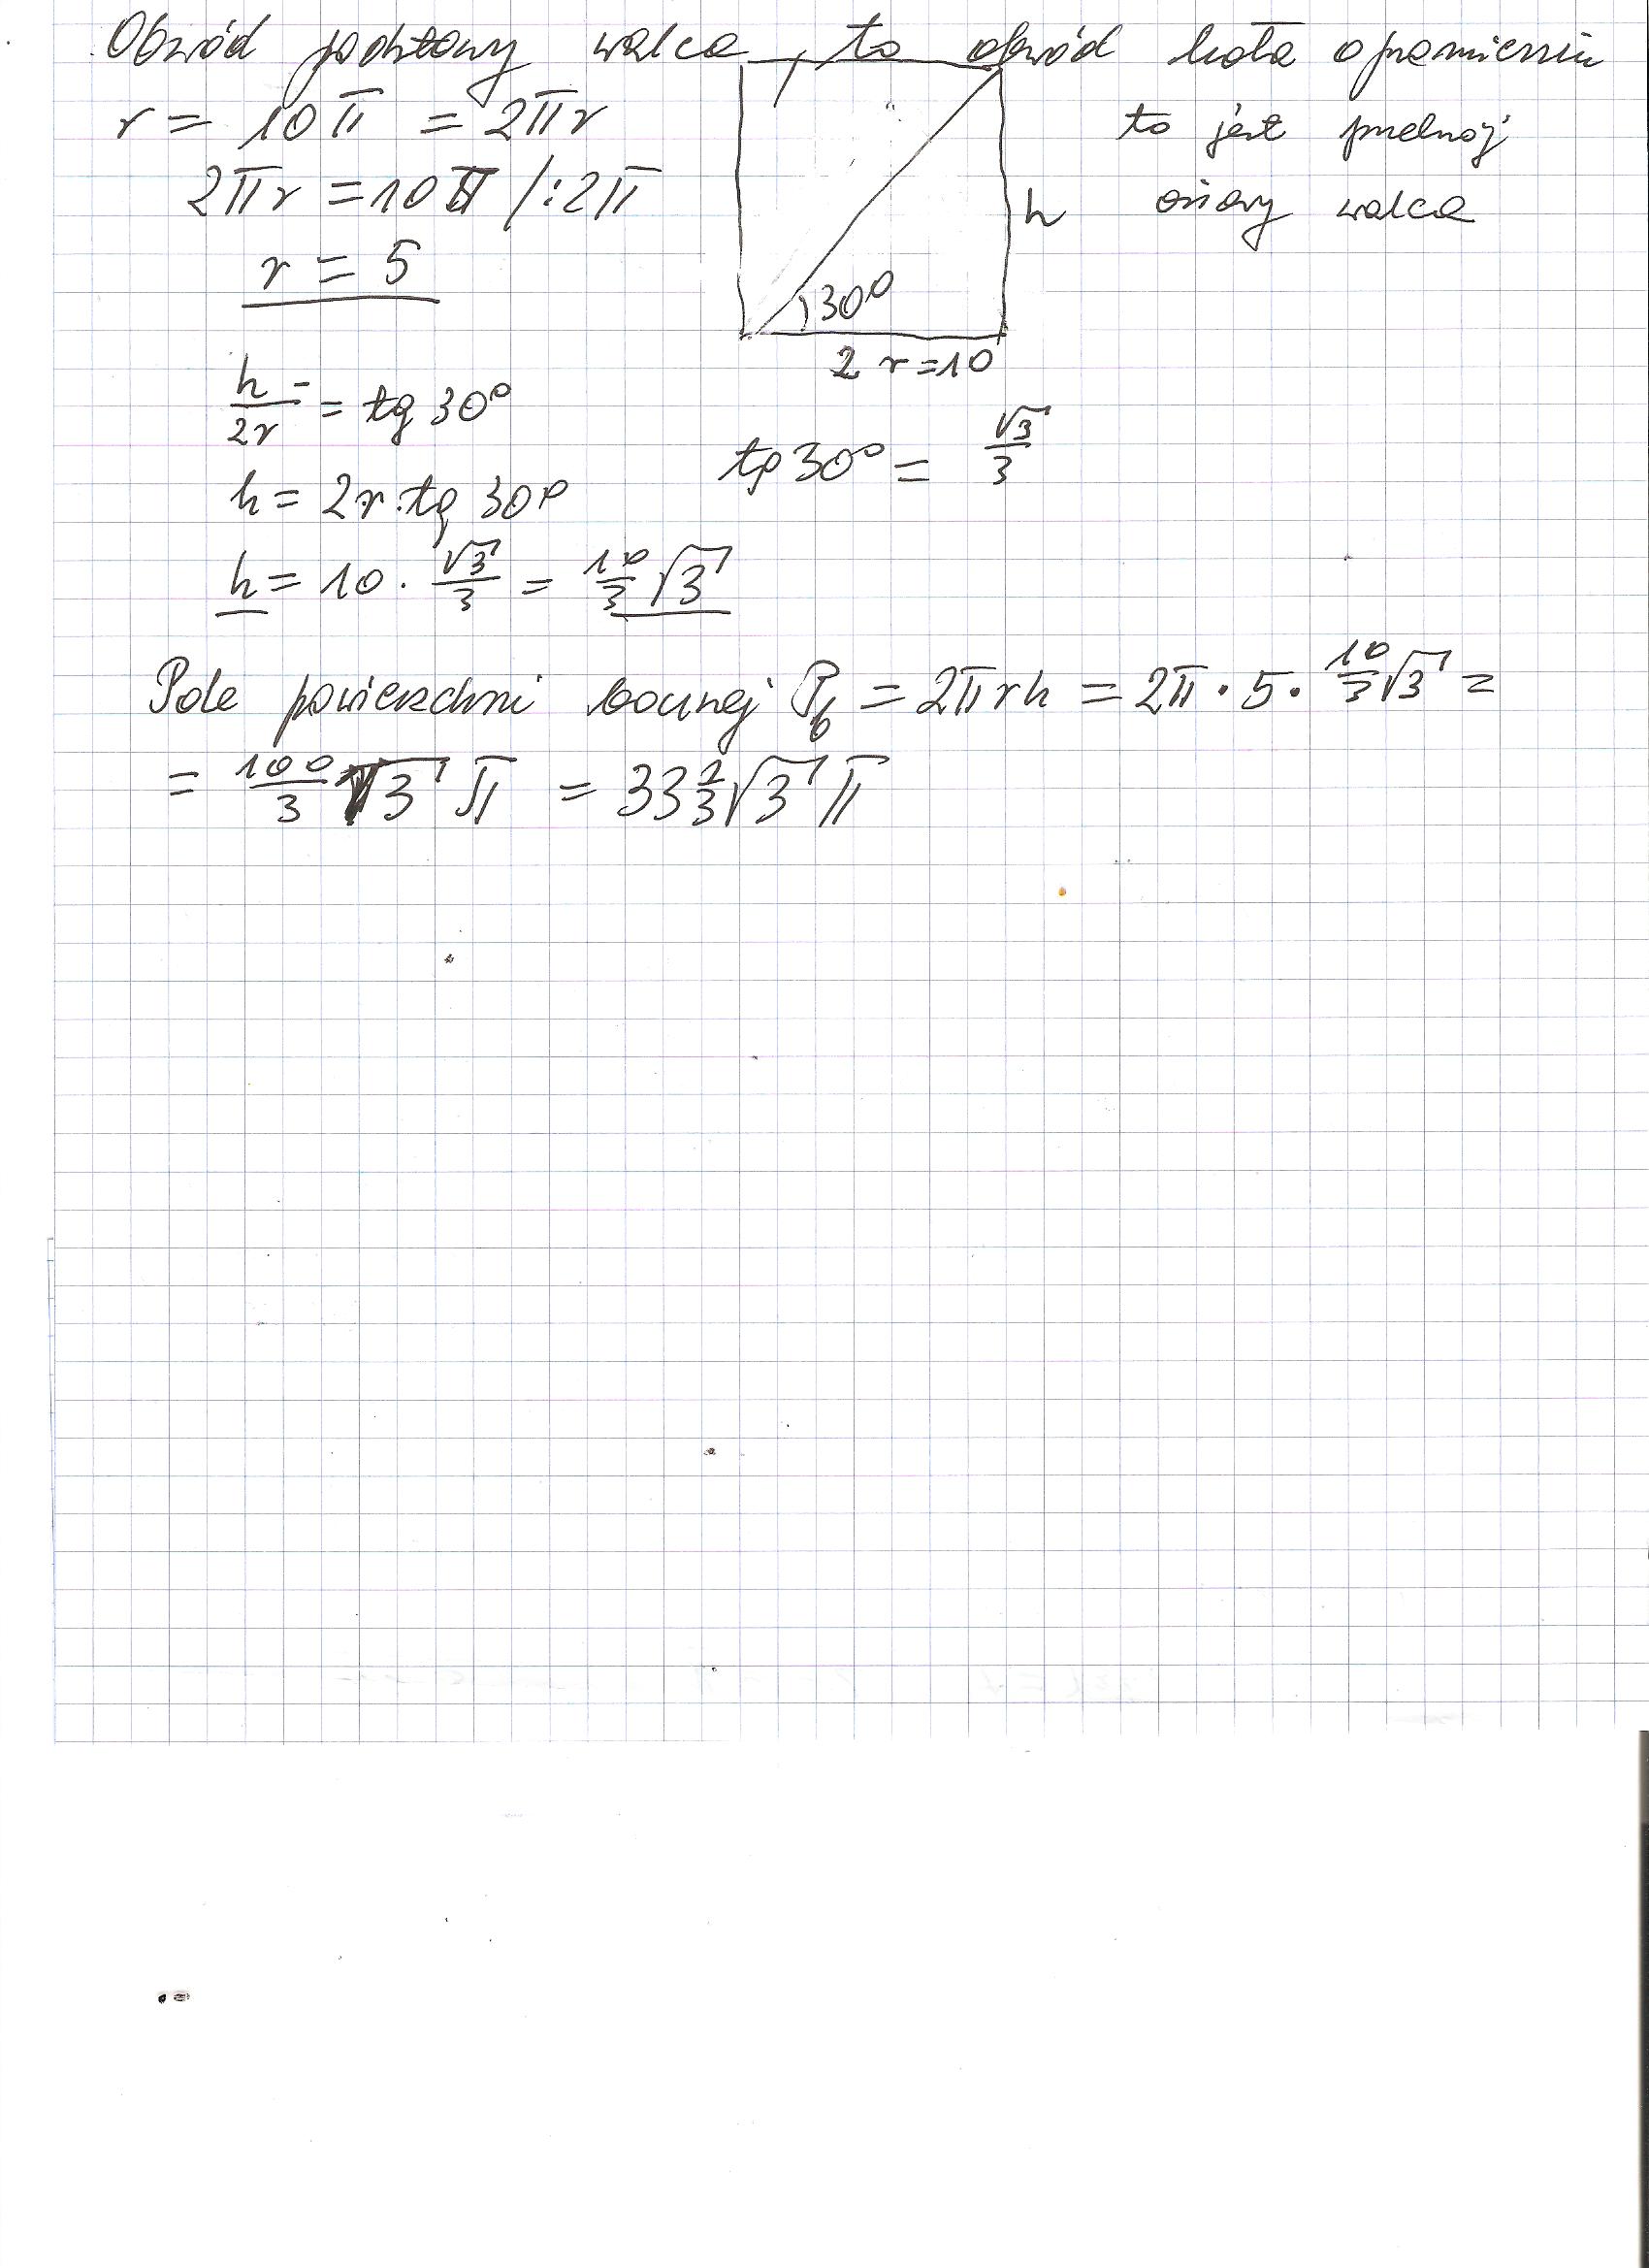 Obwód podstawy walca, to obwód koła o promieniu
r = 10π = 2πr
to jest przekrój
osiowy walca
2πr = 10π /:2π
r = 5
h
30°
2r = 10
h/2r = tg 30°
tg 30° = √3/3
h = 2r · tg 30°
h = 10 · √3/3 = 10/3 √3
Pole powierzchni bocznej P_b = 2πrh = 2π · 5 · 10/3 √3 =
= 100/3 √3 π = 33 1/3 √3 π